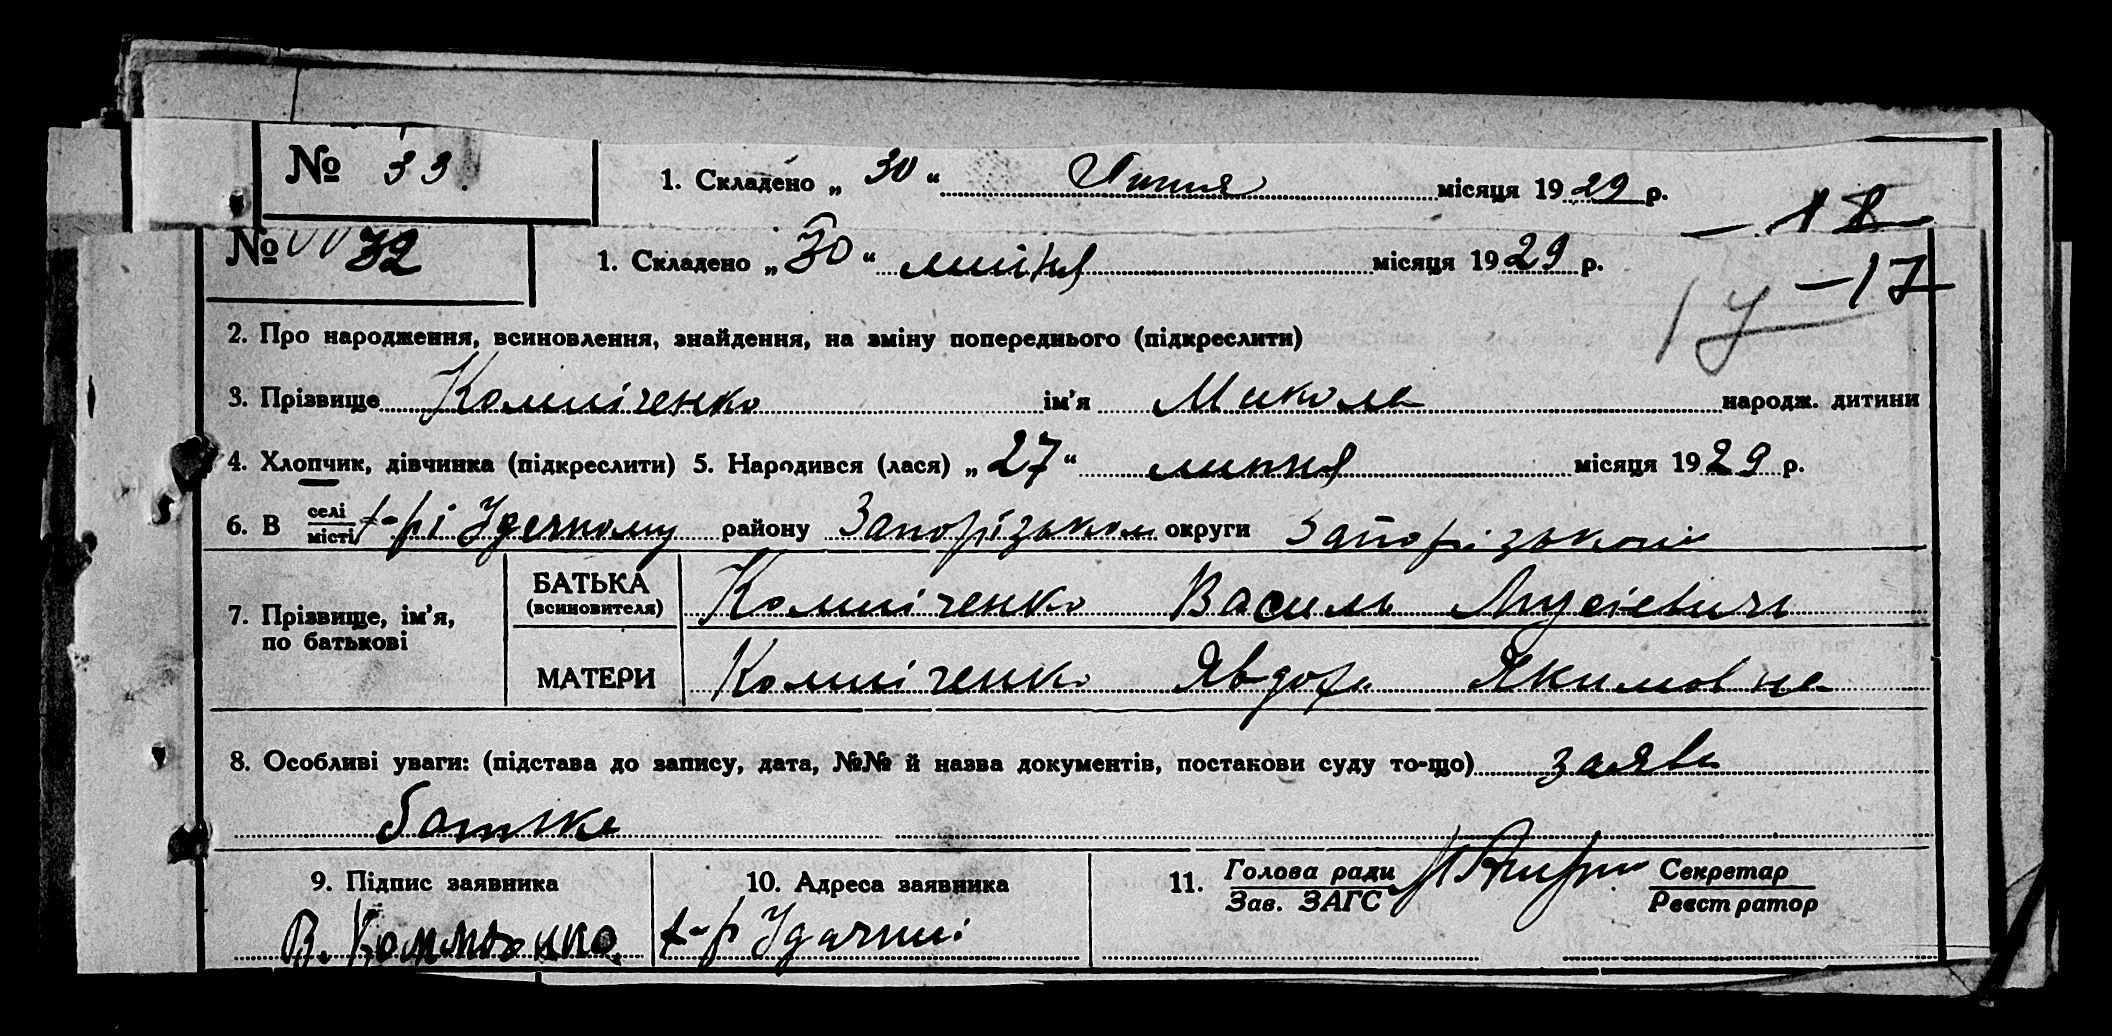 № 33. 1. Складено „ 30 “ Липня місяця 1929 р.
- 18
№ 32 1. Складено „ 30 “ липня місяця 1929 р.
- 17
17
2. Про народження, всиновлення, знайдення, на зміну попереднього (підкреслити)
3. Прізвище ім'я Микола народж. дитини
4. Хлопчик, дівчинка (підкреслити) 5. Народився (лася) „ 27 “ липня місяця 1929 р.
6. В селі місті х-рі Удачному району Запорізьком округи Запорізькоі
7. Прізвище, ім'я, по батькові
БАТЬКА (всиновителя) Василь Мусієвич
МАТЕРИ Явдоха Якимовна
8. Особливі уваги: (підстава до запису, дата, №№ й назва документів, постакови суду то-що) заява
батька
9. Підпис заявника 10. Адреса заявника 11. Голова ради Секретар
Зав. ЗАГС Реєстратор
В. х-р Удачний